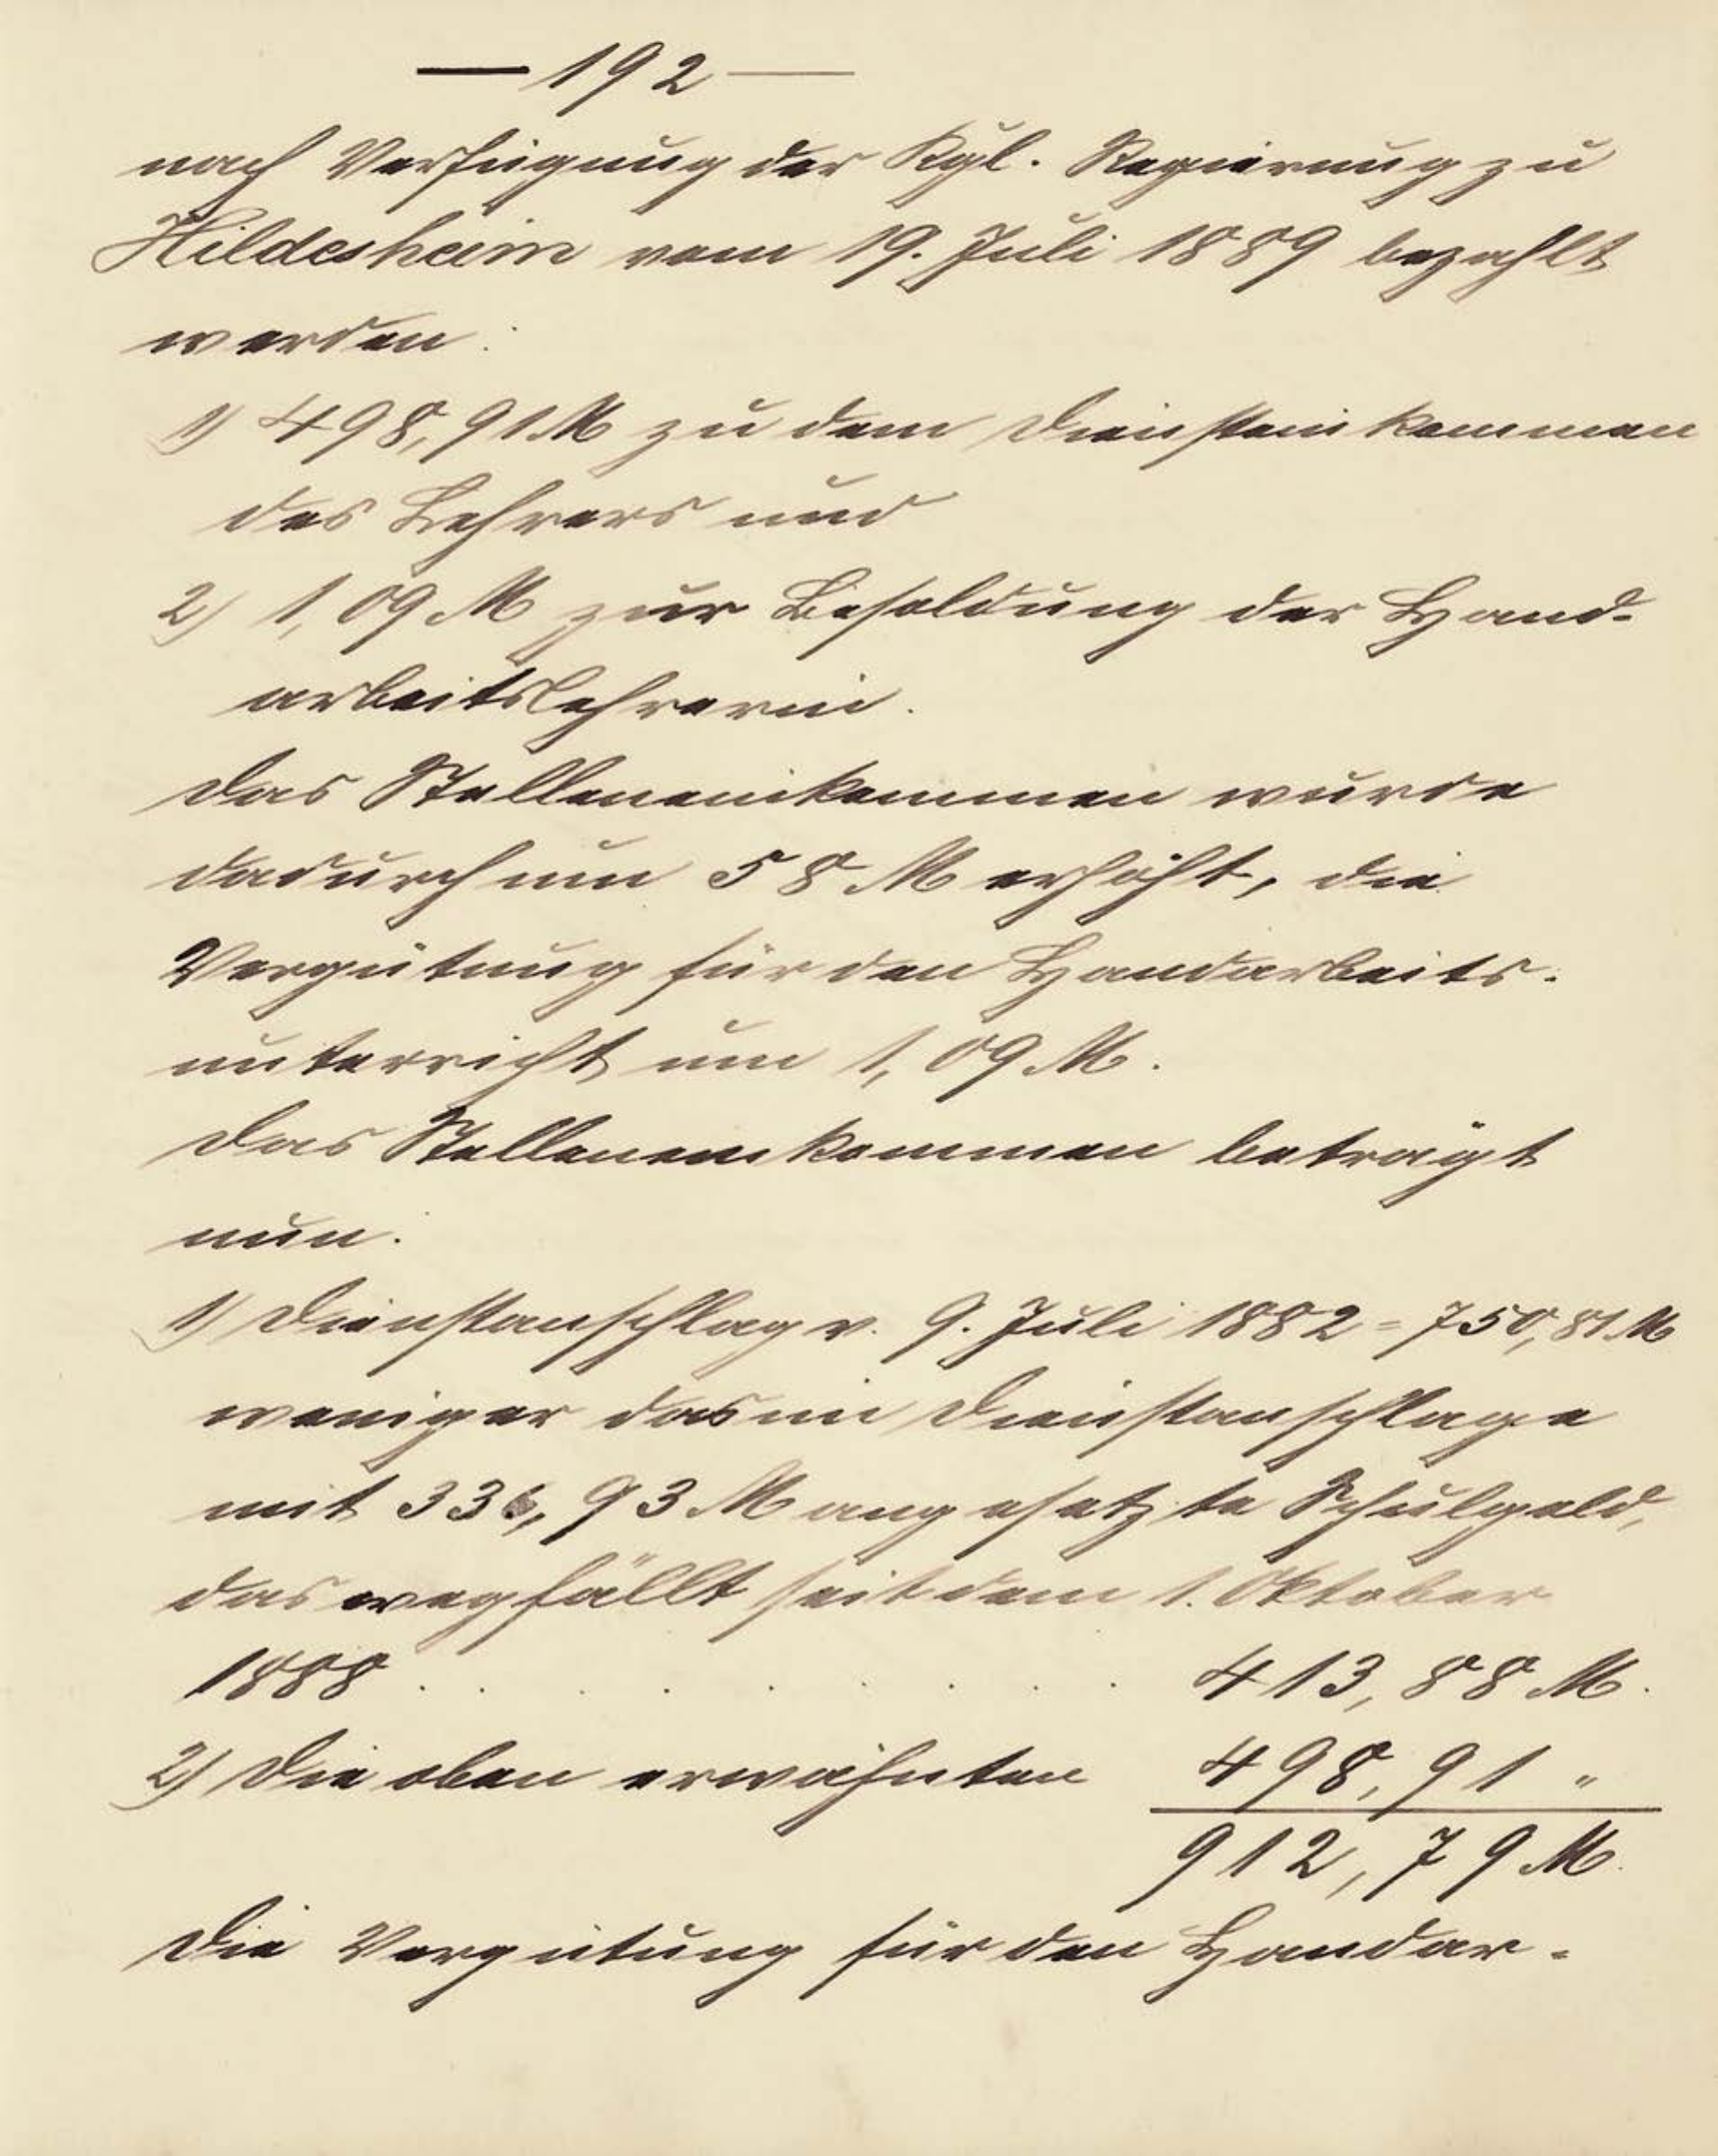 — 192 —
nach Verfügung der Kgl. Regierung zu
Hildesheim vom 19. Juli 1889 bezahlt
werden:
1) 498,91 M zu dem Diensteinkommen
des Lehrers und
2) 1,09 M zur Besoldung der Hand-
arbeitslehrerin.
Das Stelleneinkommen wurde
dadurch um 58 M erhöht, die
Vergütung für den Handarbeits-
unterricht um 1,09 M.
Das Stelleneinkommen beträgt
nun:
1) Dienstanschlag v. 9. Juli 1882 = 750,81 M
weniger das im Dienstanschlage
mit 336,93 M angesetzte Schulgeld,
das wegfällt seit dem 1. Oktober
1888 . . . . . . . . 413,88 M.
2) Die oben erwähnten 498,91 "
912,79 M.
Die Vergütung für den Handar-